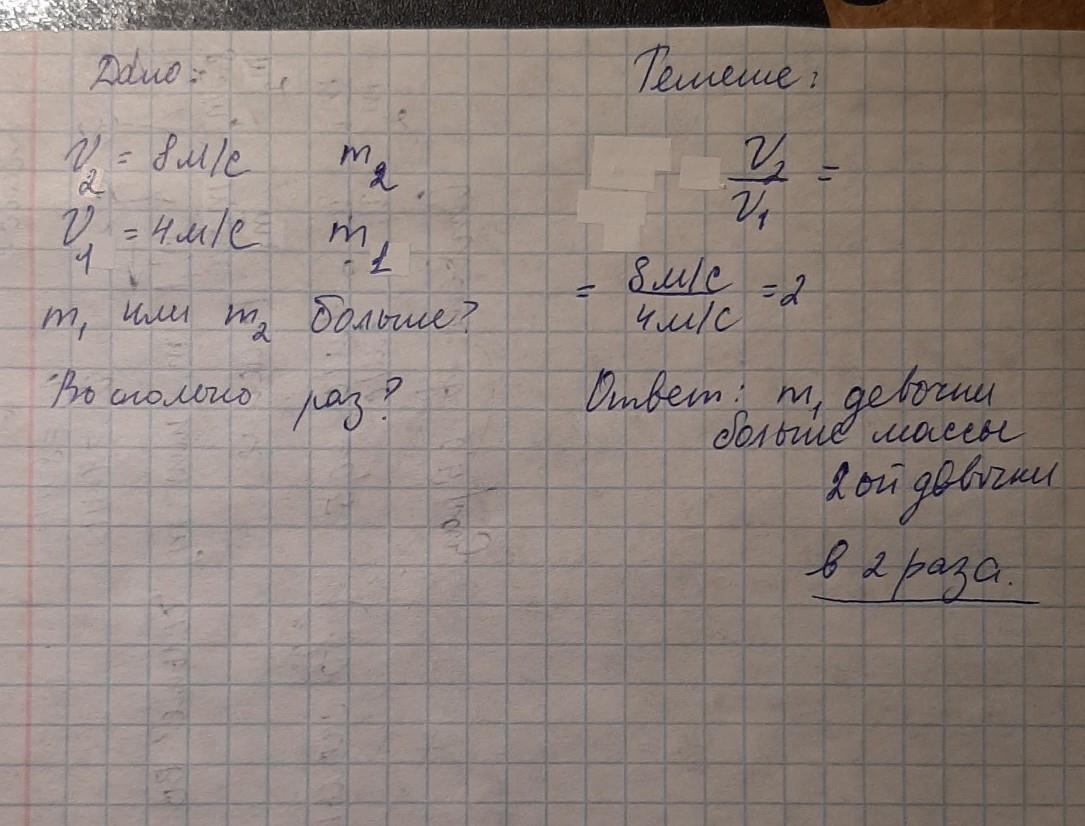 Дано:
V₂ = 8 м/с m₂
V₁ = 4 м/с m₁
m₁ или m₂ больше?
Во сколько раз?
Решение:
V₂/V₁ =
= 8 м/с / 4 м/с = 2
Ответ: m₁ девочки
больше массы
2ой девочки
в 2 раза.